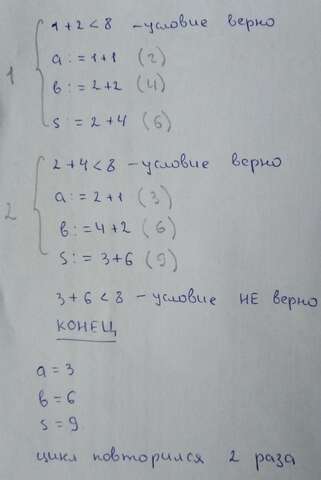 1+2<8 - условие верно
a:=1+1 (2)
1
в:=2+2 (4)
s:=2+4 (6)
2+4<8 - условие верно
a:=2+1 (3)
2
в:=4+2 (6)
s:=3+6 (9)
3+6<8 - условие НЕ верно
КОНЕЦ
a=3
в=6
s=9
цикл повторился 2 раза